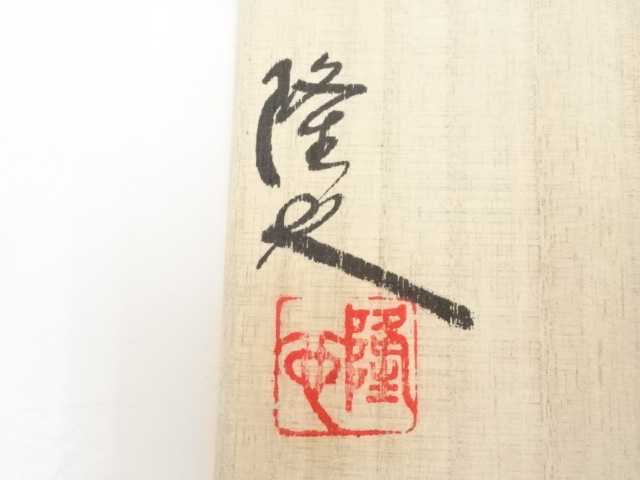 隆史
隆史